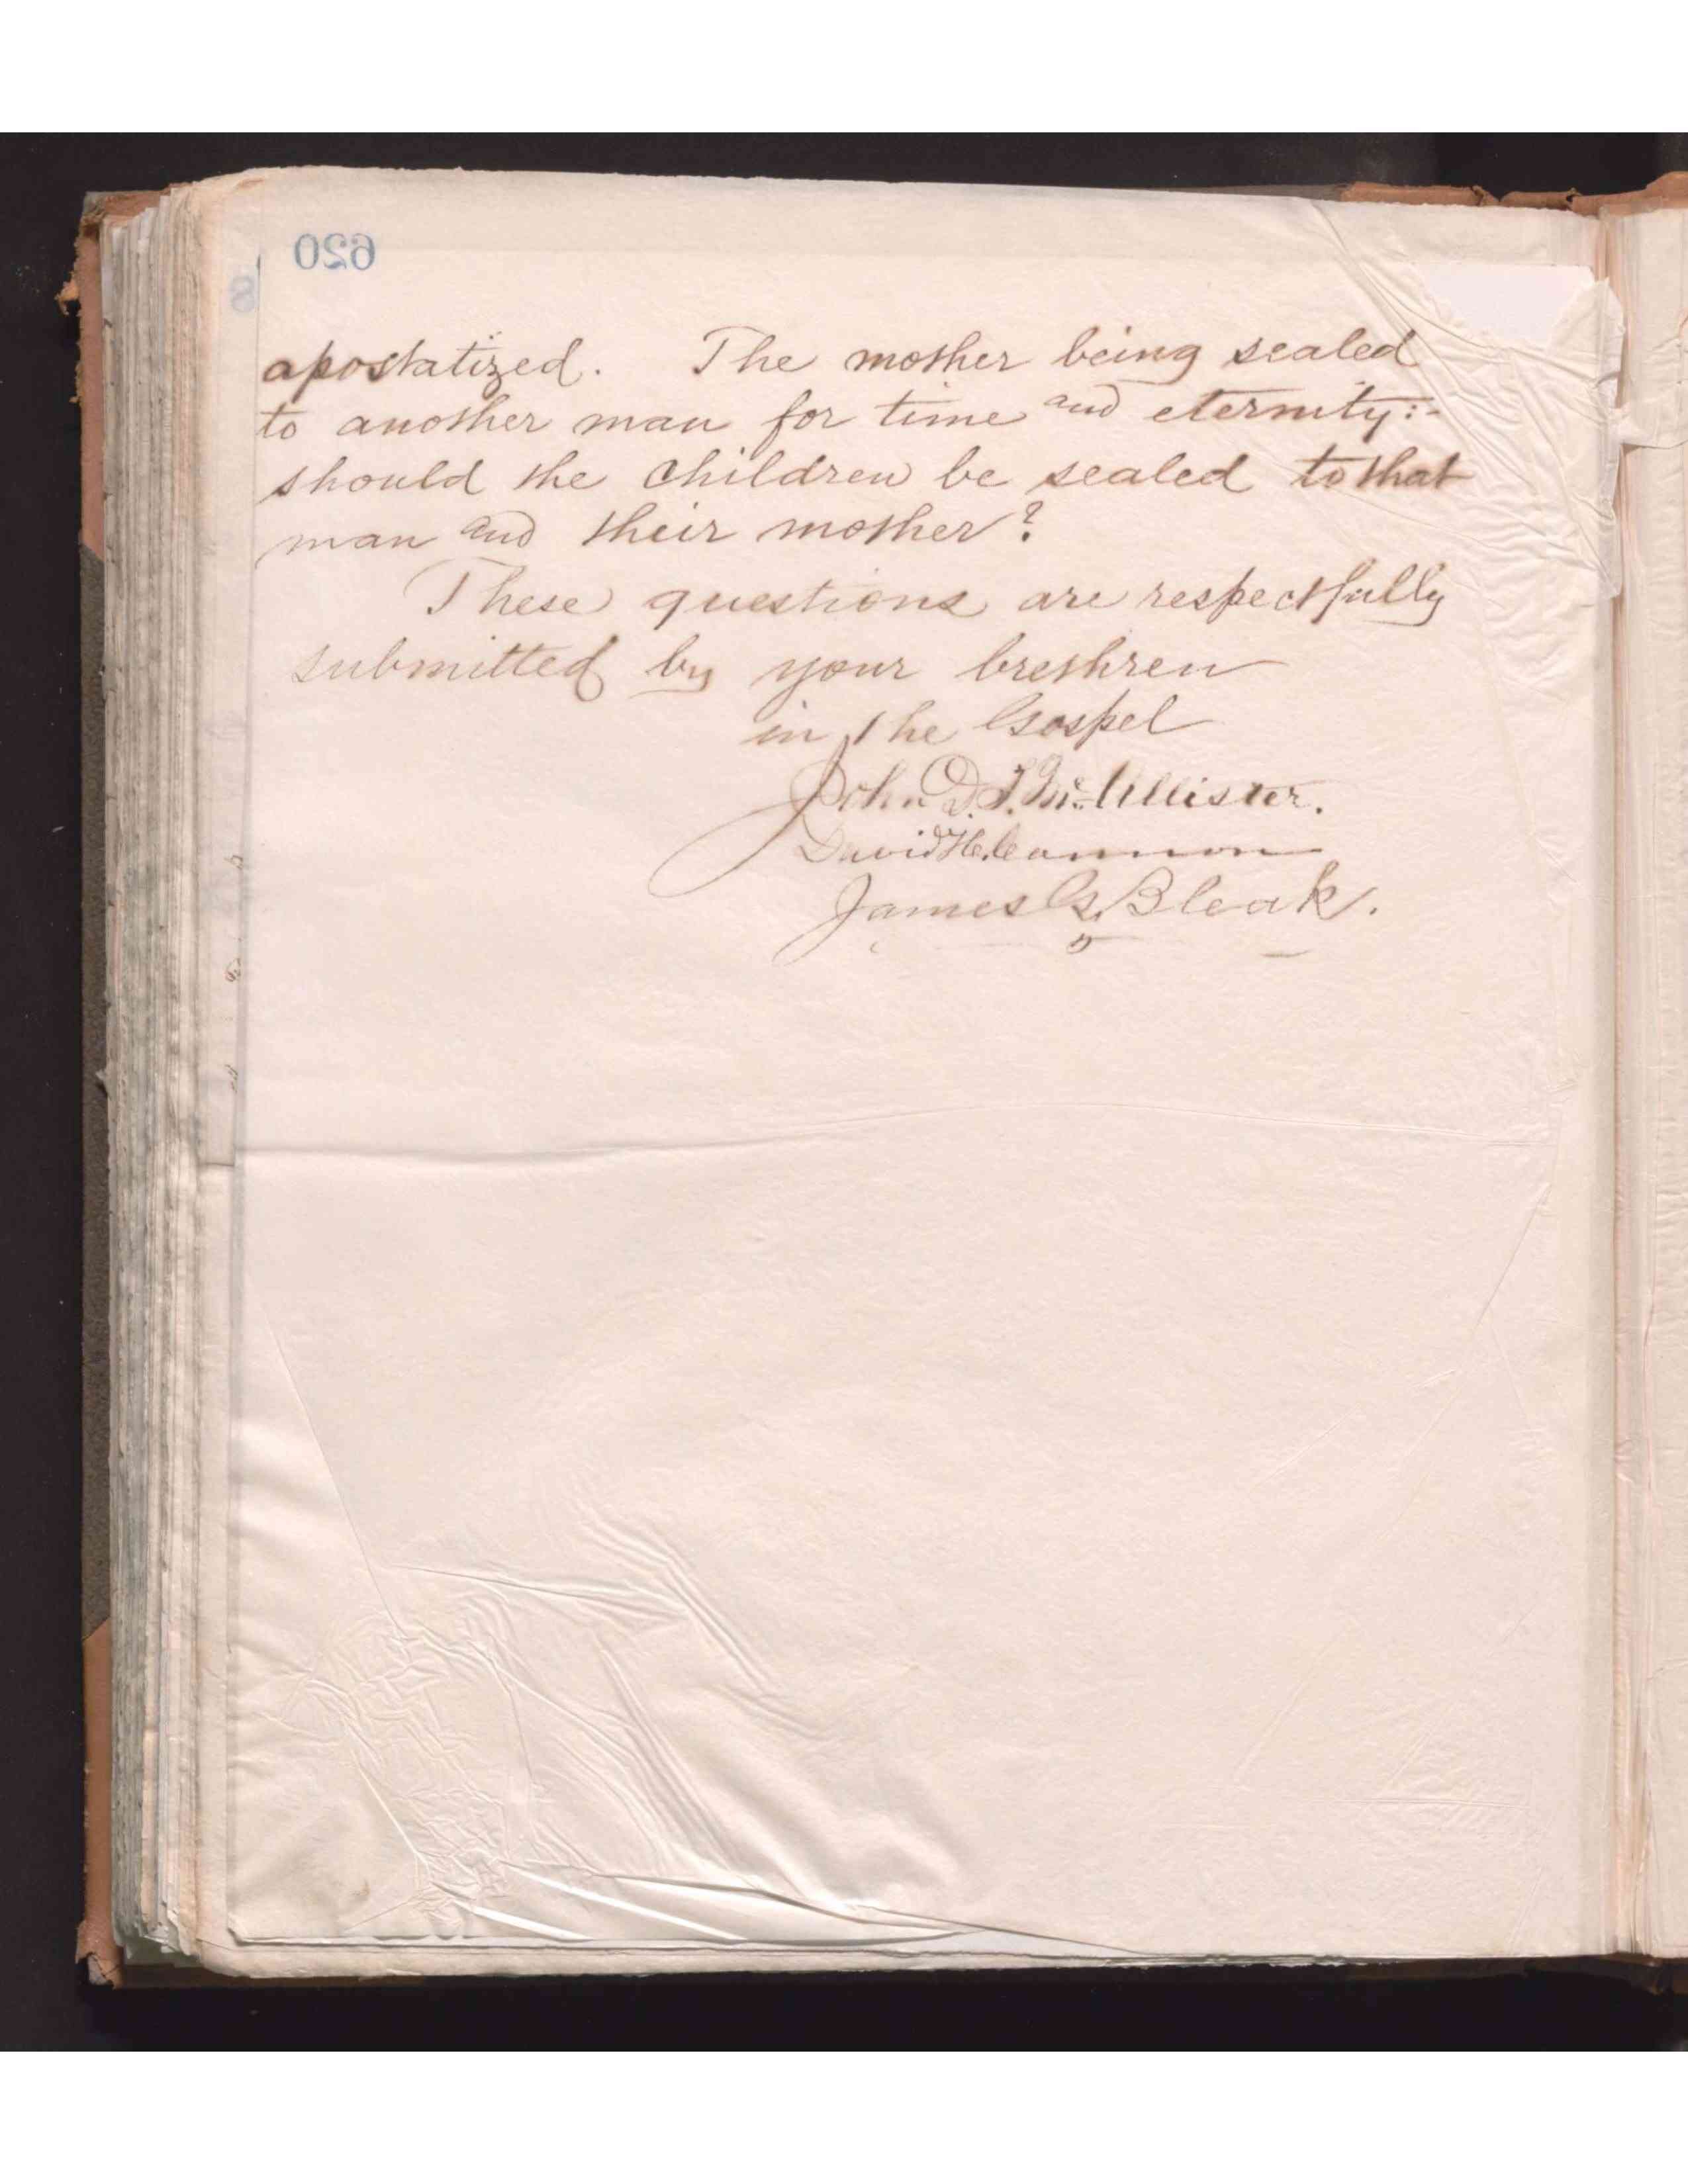 620
8
apostatized. The mother being sealed
to another man for time and eternity:-
should the children be sealed to that
man and their mother?
These questions are respectfully
submitted by your brethren
in the Gospel
John D. T. McAllister.
David H. Cannon
James G. Bleak.